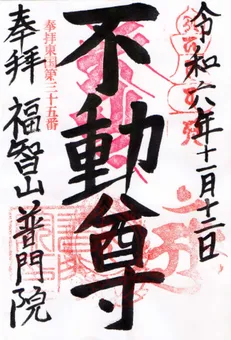 令和六年十一月十二日
不動尊
奉拝東国第三十五番
奉拝 福智山 普門院